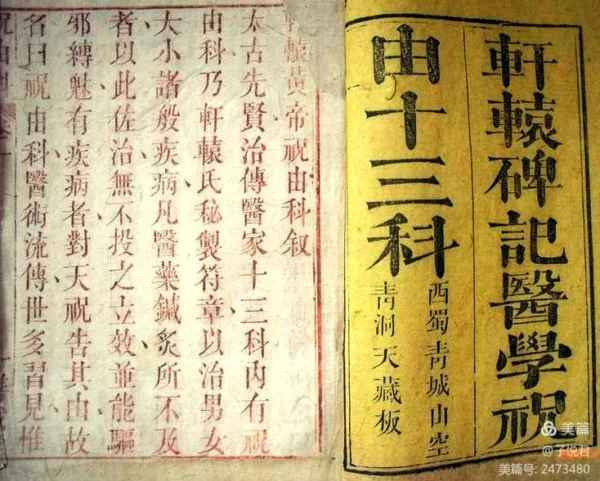 軒轅碑記醫學祝
由十三科
西蜀青城山空
青洞天藏板
軒轅黃帝祝由科叙
太古先賢治傳醫家十三科內有祝
由科乃軒轅氏秘製符章以治男女
大小諸般疾病凡醫藥鍼炙所不及
者以此佐治無不投之立效並能驅
邪縛魅有疾病者對天祝告其由故
名曰祝由科醫術流傳世多習見惟
美篇
@子悅君
美篇号: 2473480